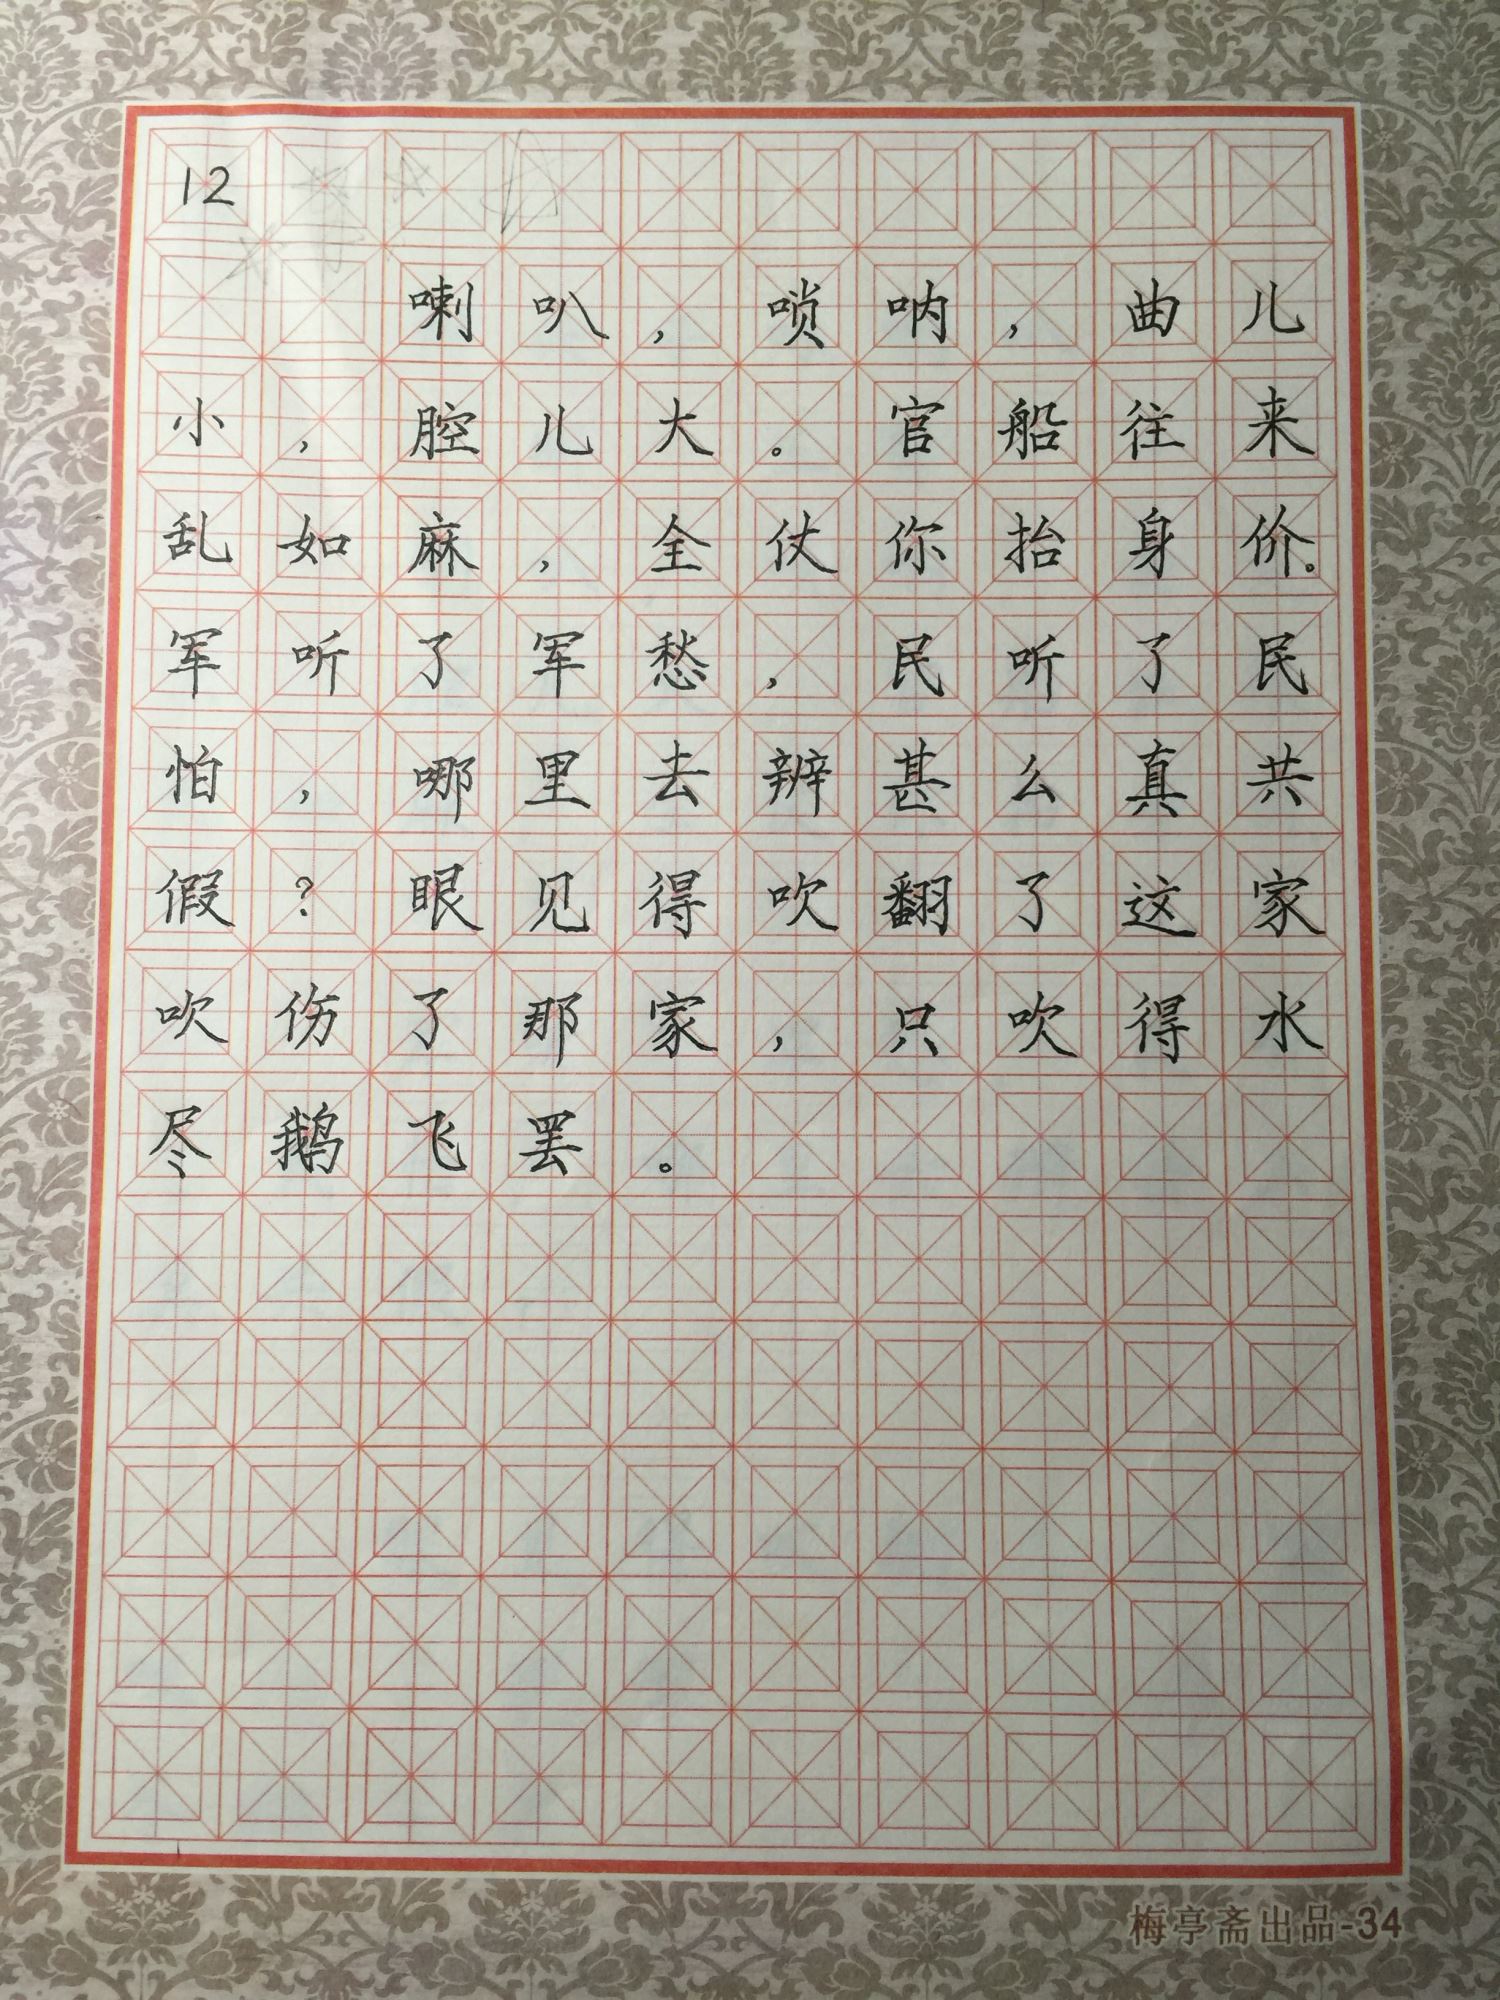 12
喇叭,唢呐,曲儿
小,腔儿大。官船往来
乱如麻,全仗你抬身价。
军听了军愁,民听了民
怕,哪里去辨甚么真共
假?眼见得吹翻了这家
吹伤了那家,只吹得水
尽鹅飞罢。
梅亭斋出品-34